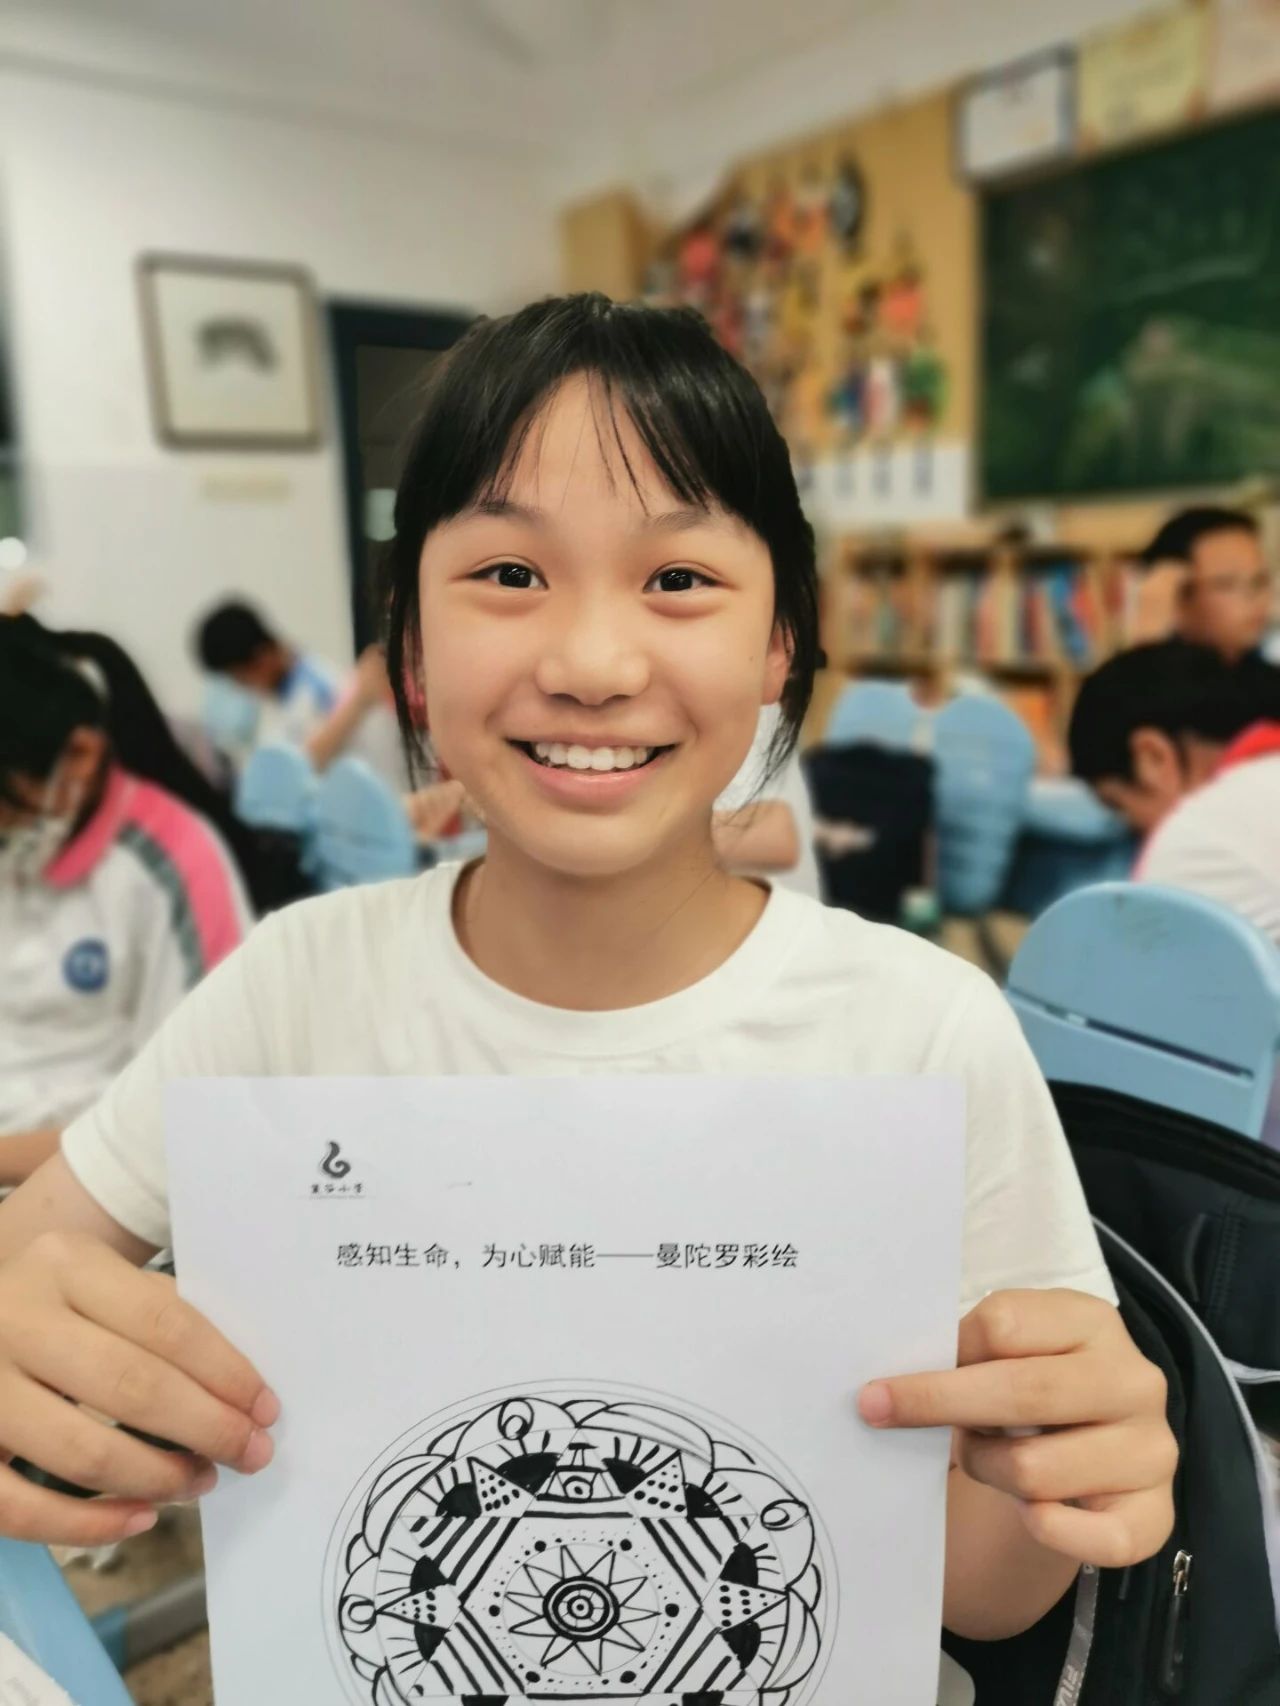 感知生命，为心赋能——曼陀罗彩绘